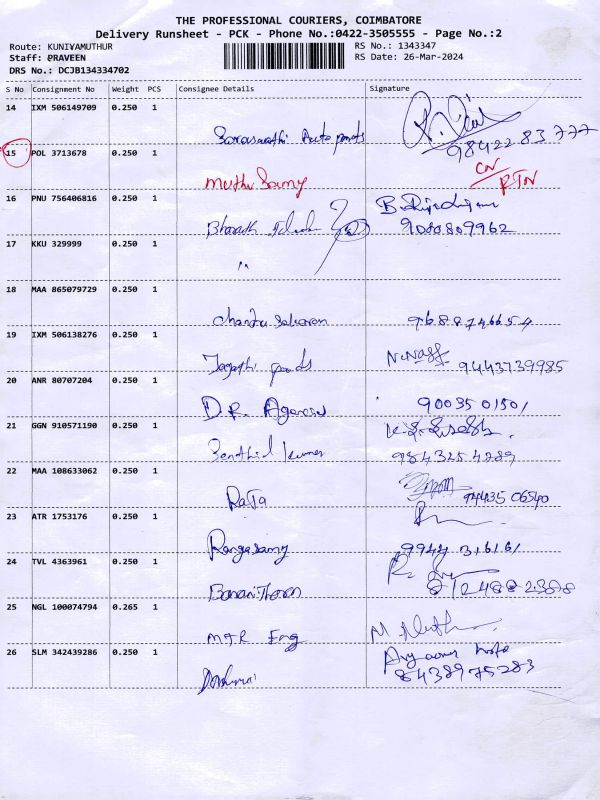 THE PROFESSIONAL COURIERS, COIMBATORE
Delivery Runsheet - PCK - Phone No.:0422-3505555 - Page No.:2
Route: KUNIYAMUTHUR RS No.: 1343347
Staff: PRAVEEN RS Date: 26-Mar-2024
DRS No.: DCJB134334702
S No Consignment No Weight PCS Consignee Details Signature
14 IXM 506149709 0.250 1
Saraswathi Auto parts 9842283777
15 POL 3713678 0.250 1
Muthu Samy CN RTN
16 PNU 756406816 0.250 1
Bharath 9080809962
17 KKU 329999 0.250 1
"
18 MAA 865079729 0.250 1
Chandra Sekaran 9688746654
19 IXM 506138276 0.250 1
goods 9443739985
20 ANR 80707204 0.250 1
D.R. Agencies 9003501501
21 GGN 910571190 0.250 1
Senthil kumar 9843254289
22 MAA 108633062 0.250 1
Raja 94435 06540
23 ATR 1753176 0.250 1
Rangasamy 9944 316161
24 TVL 4363961 0.250 1
8124882388
25 NGL 100074794 0.265 1
MTR Eng
26 SLM 342439286 0.250 1
8438975283